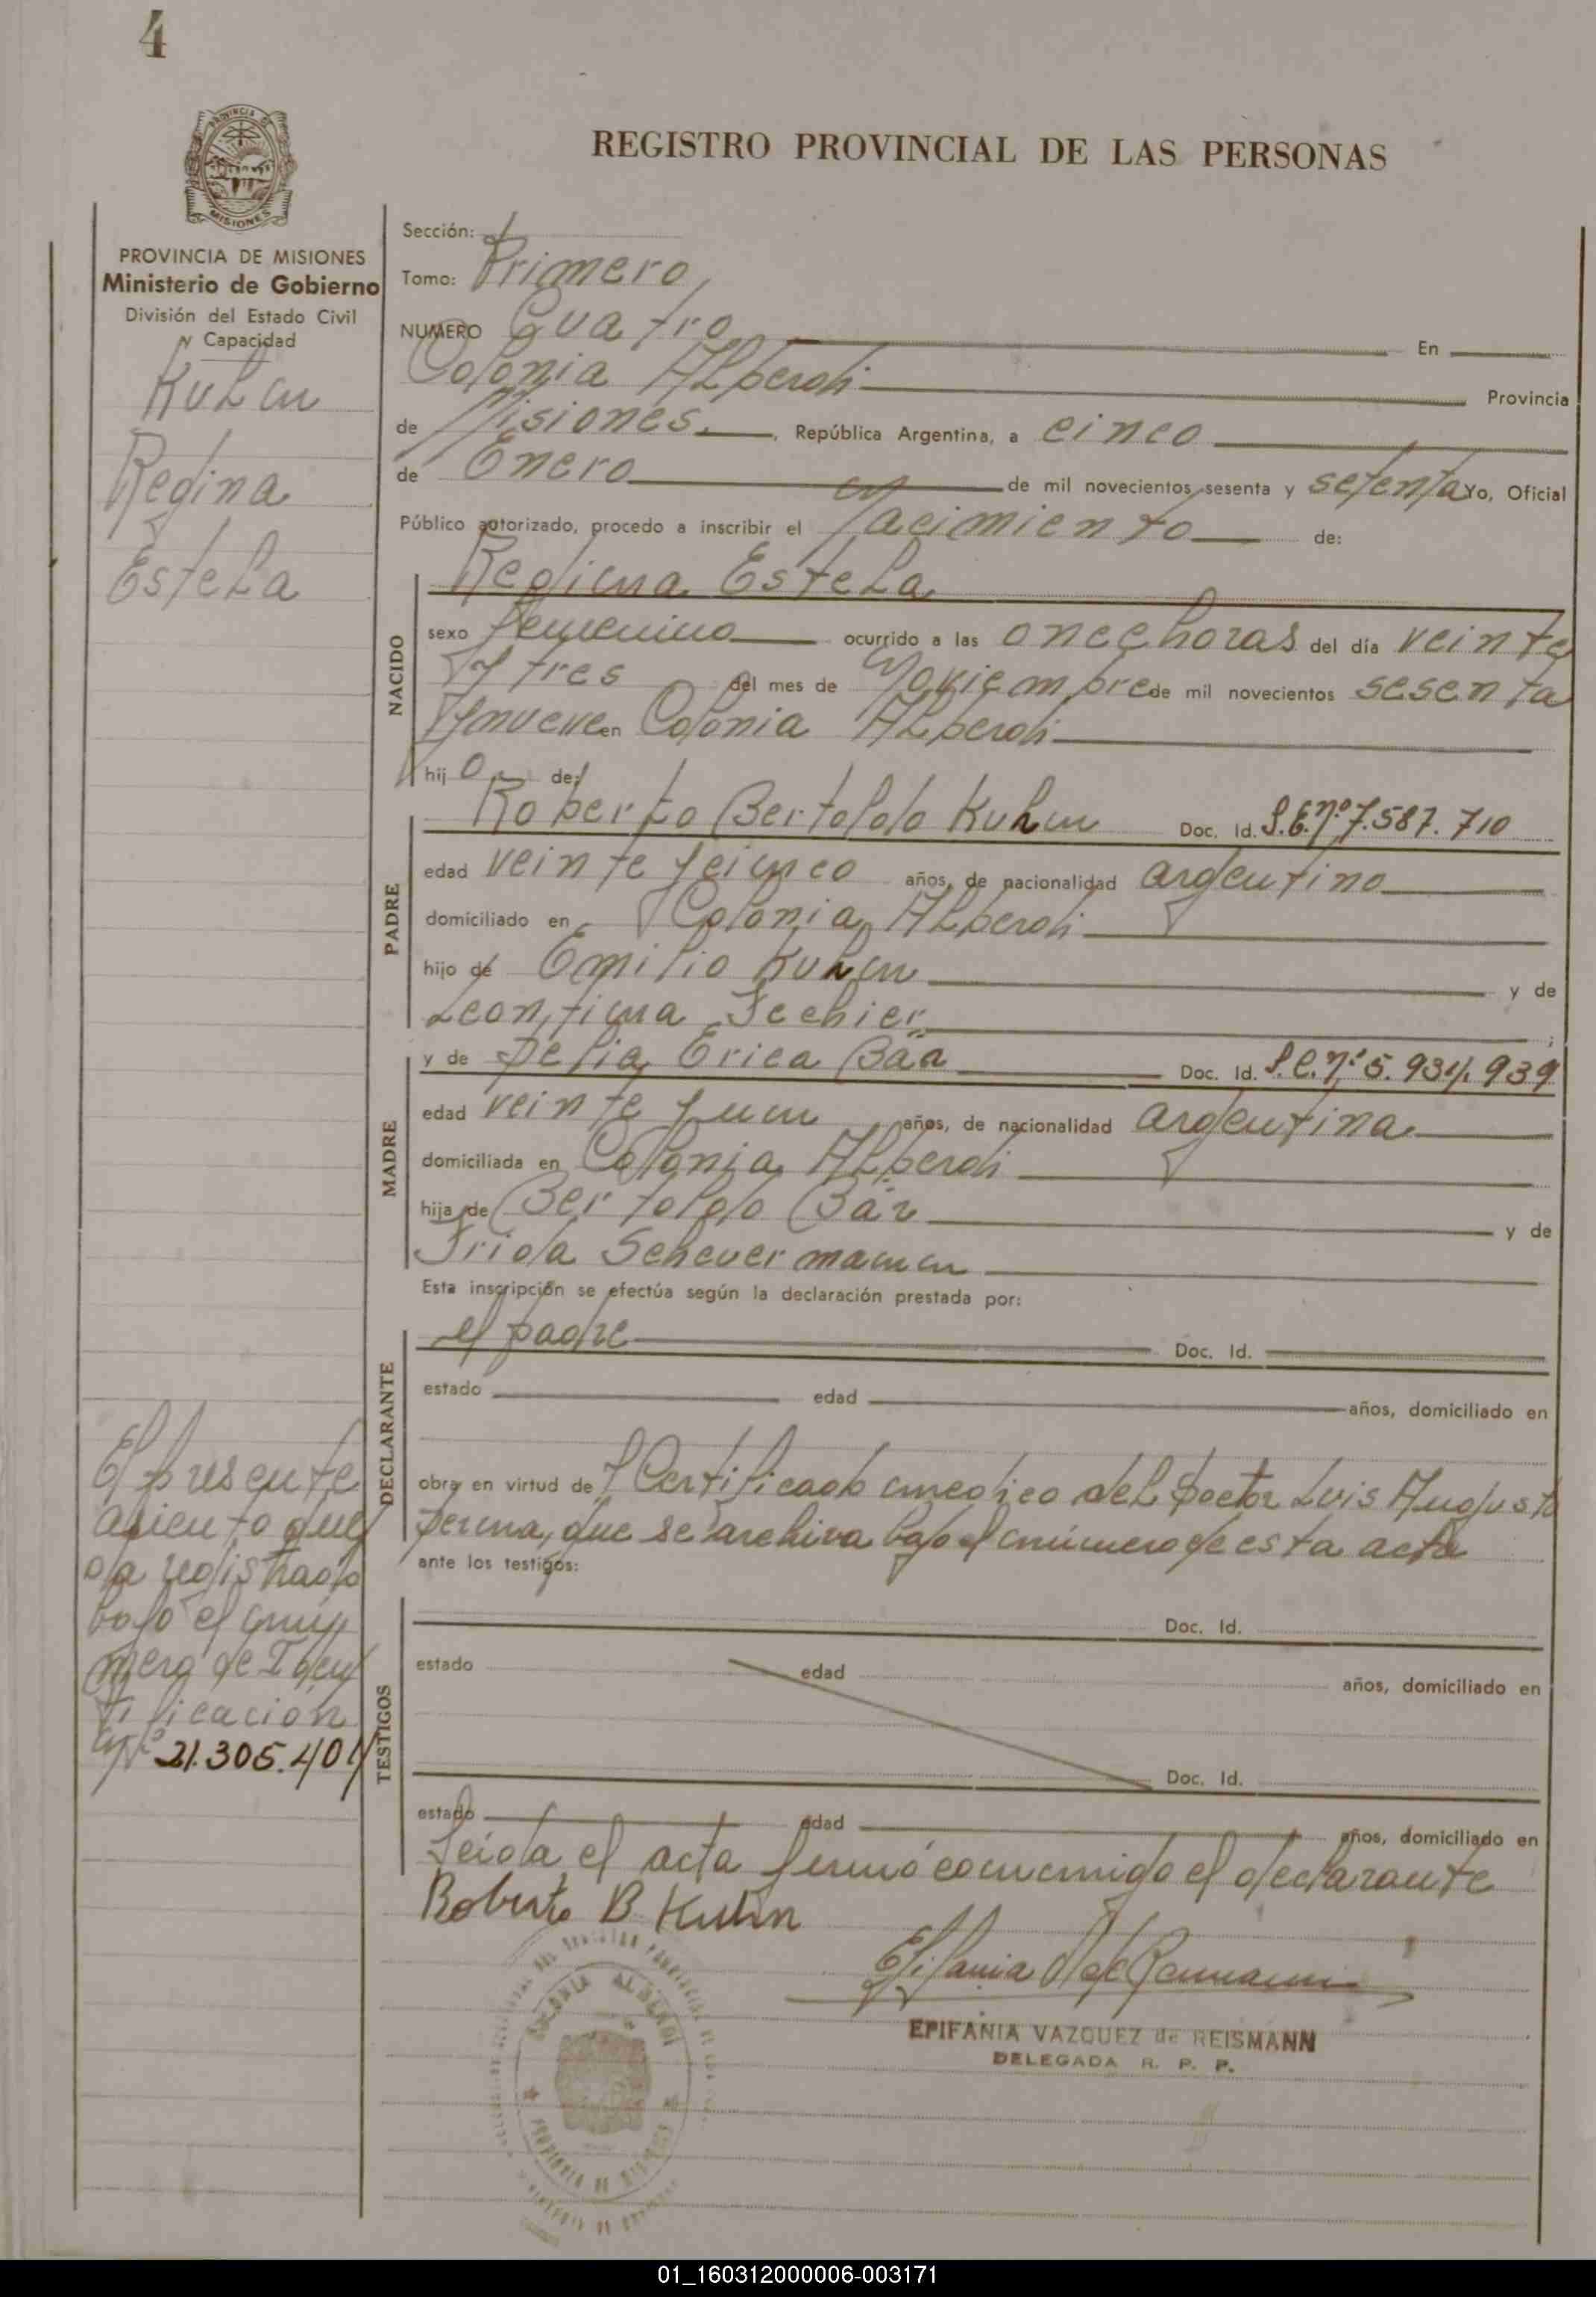 4
PROVINCIA DE
MISIONES
REGISTRO PROVINCIAL DE LAS PERSONAS
PROVINCIA DE MISIONES
Ministerio de Gobierno
División del Estado Civil
y Capacidad
Kuhn
Regina
Estela
Sección:
Tomo: Primero
NUMERO Cuatro En
Colonia Alberdi Provincia
de Misiones, República Argentina, a cinco
de Enero de mil novecientos sesenta y setenta Yo, Oficial
Público autorizado, procedo a inscribir el Nacimiento de:
NACIDO
Regina Estela
sexo femenino ocurrido a las once horas del día veinte
y tres del mes de Noviembre de mil novecientos sesenta
y nueve en Colonia Alberdi
hijo de:
PADRE
Roberto Bertoldo Kuhn Doc. Id. L.E.nº 7.587.710
edad veinte y cinco años, de nacionalidad argentino
domiciliado en Colonia Alberdi
hijo de Emilio Kuhn y de
Leontina
MADRE
y de Delia Erica Bär Doc. Id. L.C.nº 5.934.939
edad veinte y un años, de nacionalidad argentina
domiciliada en Colonia Alberdi
hija de Bertoldo Bär y de
Frida Scheuermann
Esta inscripción se efectúa según la declaración prestada por:
DECLARANTE
el padre Doc. Id.
estado edad años, domiciliado en
obra en virtud de Certificado médico del Doctor Luis Augusto
Perna, que se archiva bajo el número de esta acta
ante los testigos:
TESTIGOS
Doc. Id.
estado edad años, domiciliado en
Doc. Id.
estado edad años, domiciliado en
Leída el acta firmó conmigo el declarante
Roberto B Kuhn
El presente
asiento que
da registrado
bajo el nú
mero de Iden
tificación
Nº 21.305.401
COLONIA ALBERDI
PROVINCIA DE MISIONES
EPIFANIA VAZQUEZ de REISMANN
DELEGADA R. P. P.
01_160312000006-003171